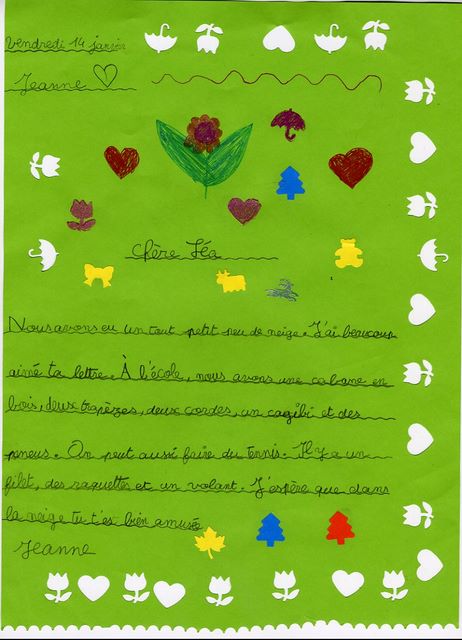 Vendredi 14 janvier
Jeanne
Chère Léa
Nous avons eu un tout petit peu de neige. J'ai beaucoup
aimé ta lettre. À l'école, nous avons une cabane en
bois, deux trapèzes, deux cordes, un cagibi et des
pneus. On peut aussi faire du tennis. Il y a un
filet, des raquettes et un volant. J'espère que dans
la neige tu t'es bien amusée
Jeanne